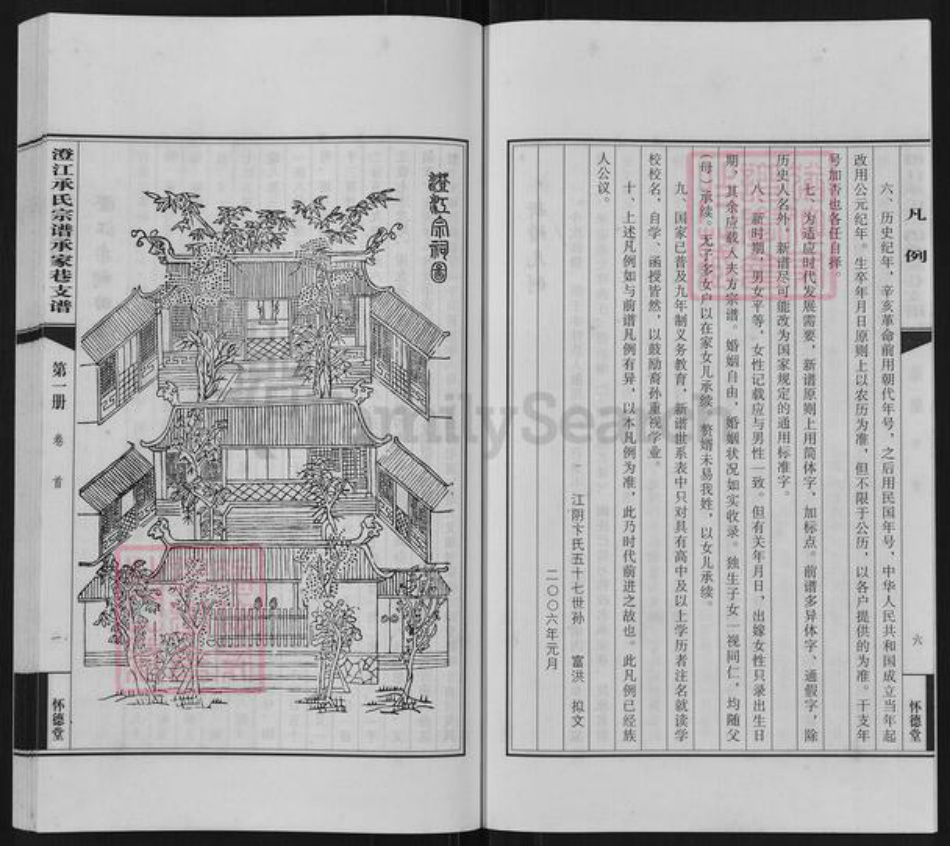 凡例
六
怀德堂
六、历史纪年，辛亥革命前用朝代年号，之后用民国年号，中华人民共和国成立当年起
改用公元纪年。生卒年月日原则上以农历为准，但不限于公历，以各户提供的为准。干支年
号加否也各任自择。
七、为适应时代发展需要，新谱原则上用简体字、加标点。前谱多异体字、通假字，除
历史人名外，新谱尽可能改为国家规定的通用标准字。
八、新时期，男女平等，女性记载应与男性一致。但有关年月日，出嫁女性只录出生日
期，其余应载人夫方宗谱。婚姻自由，婚姻状况如实收录。独生子女一视同仁，均随父
（母）承续。无子多女户以在家女儿承续，赘婿未易我姓，以女儿承续。
九、国家已普及九年制义务教育，新谱世系表中只对具有高中及以上学历者注名就读学
校校名，自学、函授皆然，以鼓励裔孙重视学业。
十、上述凡例如与前谱凡例有异，以本凡例为准，此乃时代前进之故也。此凡例已经族
人公议。
江阴卞氏五十七世孙 富洪 拟文
二〇〇六年元月
澄江宗祠图
澄江承氏宗谱承家巷支谱
第一册
卷首
一
怀德堂
FamilySearch